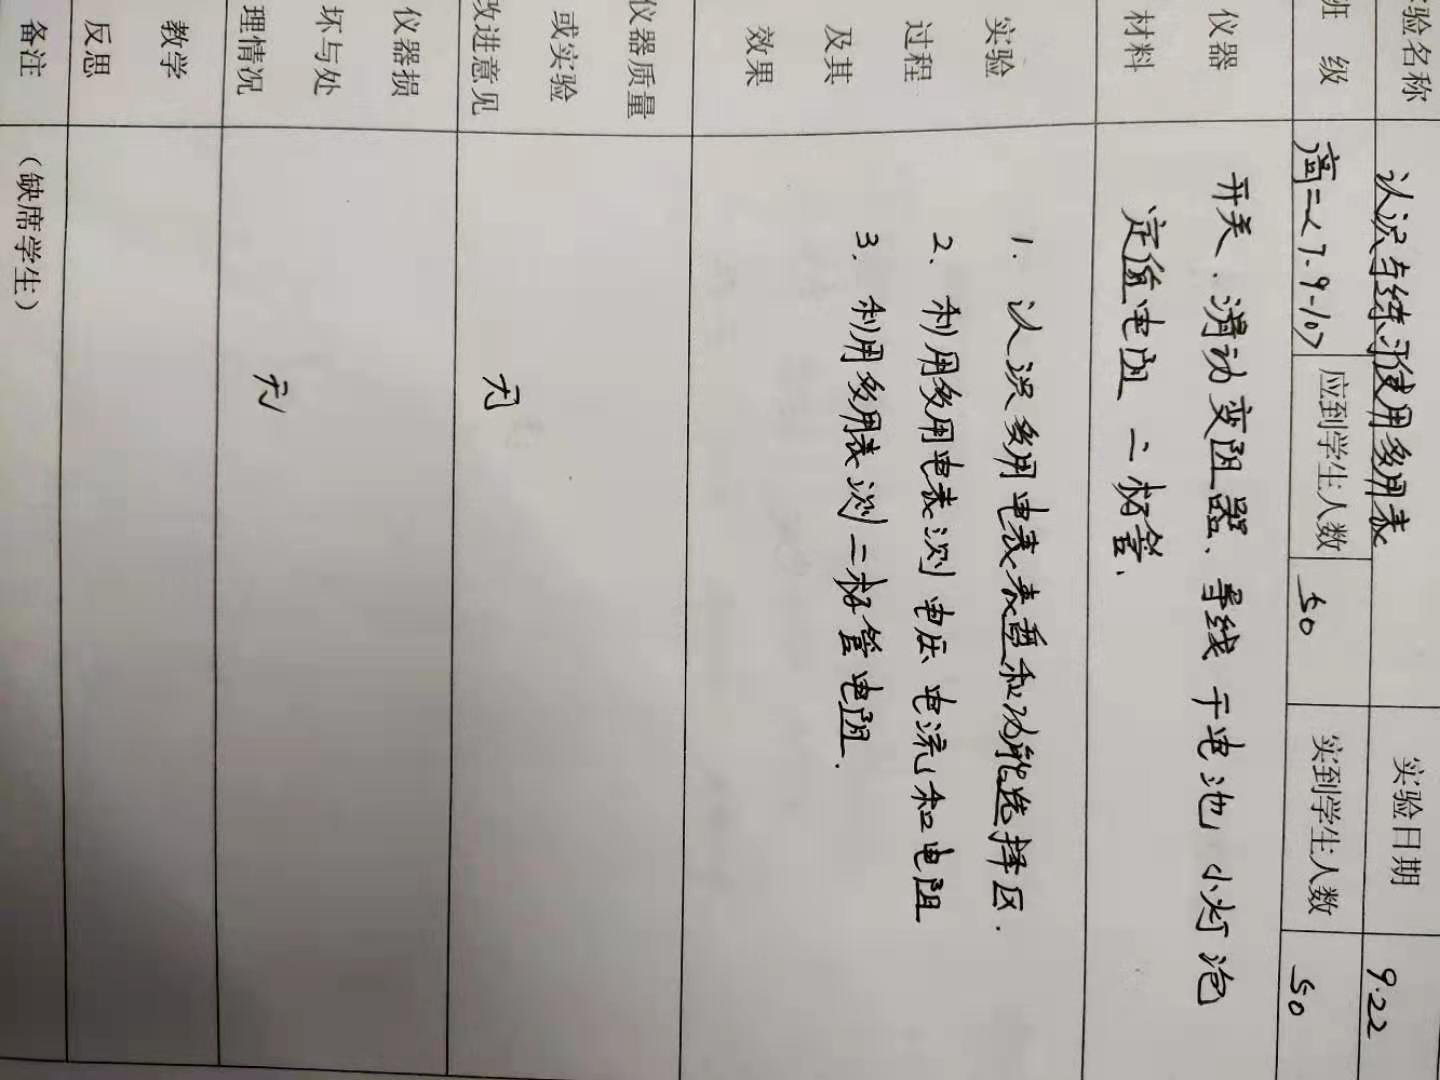 验名称 认识与练习使用多用表 实验日期 9.22
班 级 高二<7.9-10> 应到学生人数 50 实到学生人数 50
仪器 开关、滑动变阻器、导线 干电池 小灯泡
材料 定值电阻 二极管、
实验 1. 认识多用电表表盘和功能选择区.
过程 2、利用多用电表测电压 电流和电阻
及其 3、利用多用表测二极管电阻.
效果
仪器质量
或实验
改进意见 无
仪器损
坏与处
理情况 无
教学
反思
备注 （缺席学生）